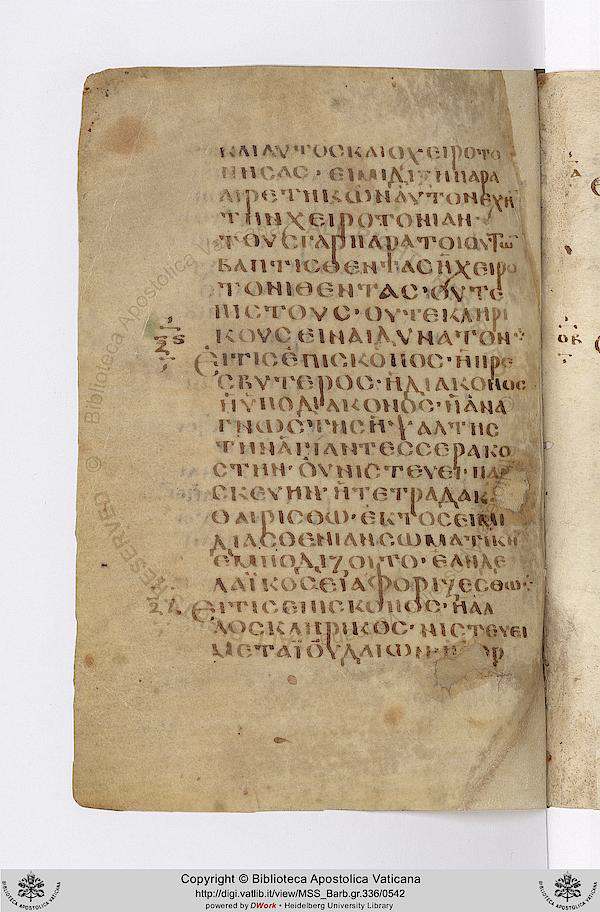 ΚΑΙΑΥΤΟΣΚΑΙΟΧΕΙΡΟΤΟ
ΝΗΣΑΣ· ΕΙΜΙΔΙΞΗΠΑΡΑ
ΑΙΡΕΤΗΚΩΝΑΥΤΟΝΕΧΗ
ΤΗΝΧΕΙΡΟΤΟΝΙΑΝ·
ΤΟΥΣΓΑΡΠΑΡΑΤΟΙΟΥΤΩ
ΒΑΠΤΙΣΘΕΝΤΑΣΗΧΕΙΡΟ
ΤΟΝΙΘΕΝΤΑΣ· ΟΥΤΕ
ΠΙΣΤΟΥΣ· ΟΥΤΕΚΛΗΡΙ
ΚΟΥΣΕΙΝΑΙΔΥΝΑΤΟΝ
ΞΣ
ΕΙΤΙΣΕΠΙΣΚΟΠΟΣ· ΗΠΡΕ
ΣΒΥΤΕΡΟΣ· ΗΔΙΑΚΟΝΟΣ
ΗΥΠΟΔΙΑΚΟΝΟΣ· ΗΑΝΑ
ΓΝΩΣΤΗΣΗ· ΨΑΛΤΗΣ
ΤΗΝΑΓΙΑΝΤΕΣΣΕΡΑΚΟ
ΣΤΗΝ· ΟΥΝΙΣΤΕΥΕΙ· ΠΑΡ
ΣΚΕΥΗΝ· ΗΤΕΤΡΑΔΑΚ
ΘΑΙΡΙΣΘΩ· ΕΚΤΟΣΕΙΜΙ
ΔΙΑΣΘΕΝΙΑΝΣΩΜΑΤΙΚΗ
ΕΜΠΟΔΙΖΟΙΤΟ· ΕΑΝΔΕ
ΛΑΪΚΟΣΕΙΑΦΟΡΙΖΕΣΘΩ
ΞΖ
ΕΙΤΙΣΕΠΙΣΚΟΠΟΣ· ΗΑΛ
ΛΟΣΚΛΗΡΙΚΟΣ· ΝΙΣΤΕΥΕΙ
ΜΕΤΑΪΟΥΔΑΙΩΝ·
© Biblioteca Apostolica Vaticana
Copyright © Biblioteca Apostolica Vaticana
http://digi.vatlib.it/view/MSS_Barb.gr.336/0542
powered by DWork • Heidelberg University Library